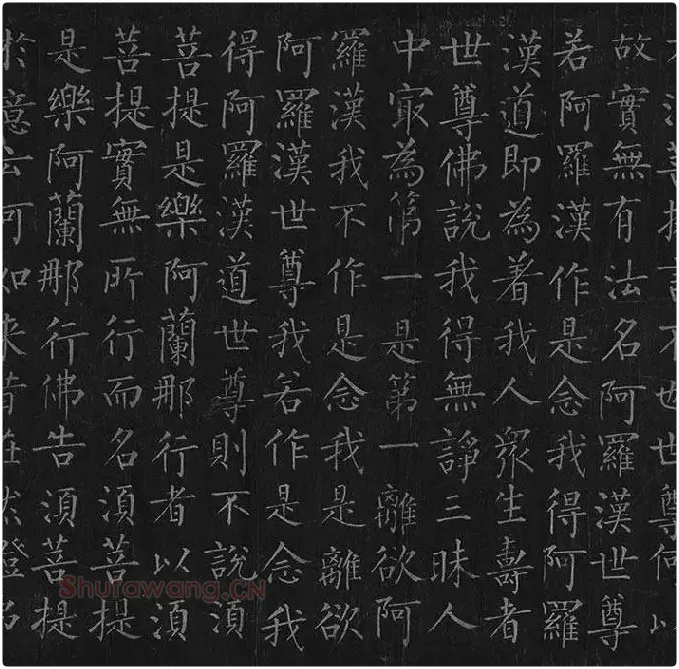 菩提言不也世尊何以
故實無有法名阿羅漢世尊
若阿羅漢作是念我得阿羅
漢道即為著我人眾生壽者
世尊佛說我得無諍三昧人
中冣為第一是第一離欲阿
羅漢我不作是念我是離欲
阿羅漢世尊我若作是念我
得阿羅漢道世尊則不說須
菩提是樂阿蘭那行者以須
菩提實無所行而名須菩提
是樂阿蘭那行佛告須菩提
於意云何如来昔在然燈
Shufawang.CN